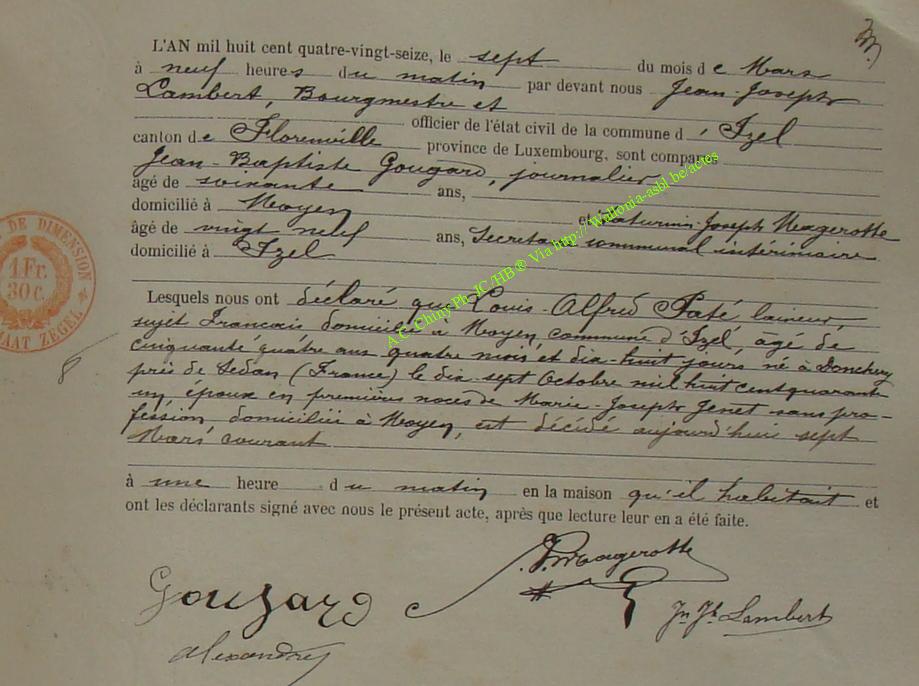 L'AN mil huit cent quatre-vingt-seize, le sept du mois de Mars
à neuf heures du matin par devant nous Jean-Joseph
Lambert, Bourgmestre et
officier de l'état civil de la commune d'Izel
canton de Florenville province de Luxembourg, sont comparus
Jean-Baptiste Gougard, journalier
âgé de soixante ans,
domicilié à Moyen et Saturnin-Joseph Magerotte
âgé de vingt neuf ans, Secrétaire communal intérimaire
domicilié à Izel
Lesquels nous ont déclaré que Louis-Alfred Paté laineur,
sujet Francais domicilié à Moyen, commune d'Izel, âgé de
cinquante quatre ans quatre mois et dix-huit jours né à Donchery
près de Sedan (France) le dix-sept Octobre mil huit cent quarante
un, époux en premières noces de Marie-Joseph Jenet sans pro-
fession, domiciliée à Moyen, est décédé aujourd'hui sept
Mars courant
à une heure du matin en la maison qu'il habitait et
ont les déclarants signé avec nous le présent acte, après que lecture leur en a été faite.
Magerotte
Gouzard
Jn Jh Lambert
alexandre
DE DIMENSION
1 Fr.
30 c.
MAAT ZEGEL
8
A.C. Chiny Ph. JC/HB® Via http://Wallonia-asbl.be/actes